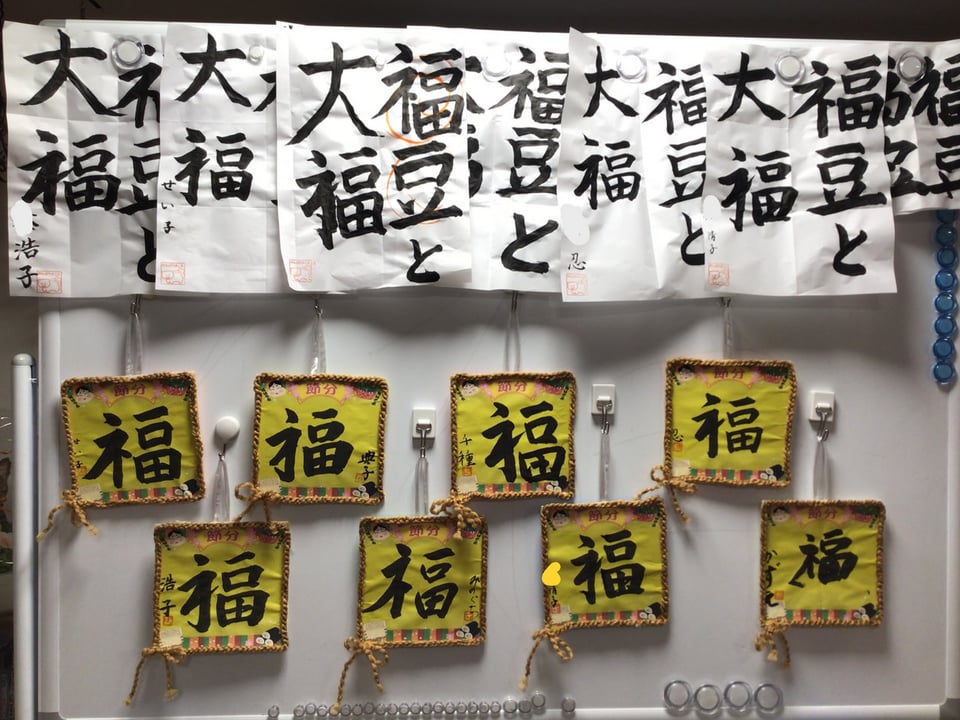 福豆と
大福
浩子
大福
せい子
福豆と
大福
福豆と
福豆と
大福
忍
福豆と
大福
福豆
節分
福
節分
福
典子
節分
福
千種
節分
福
忍
節分
福
浩子
節分
福
節分
福
節分
福